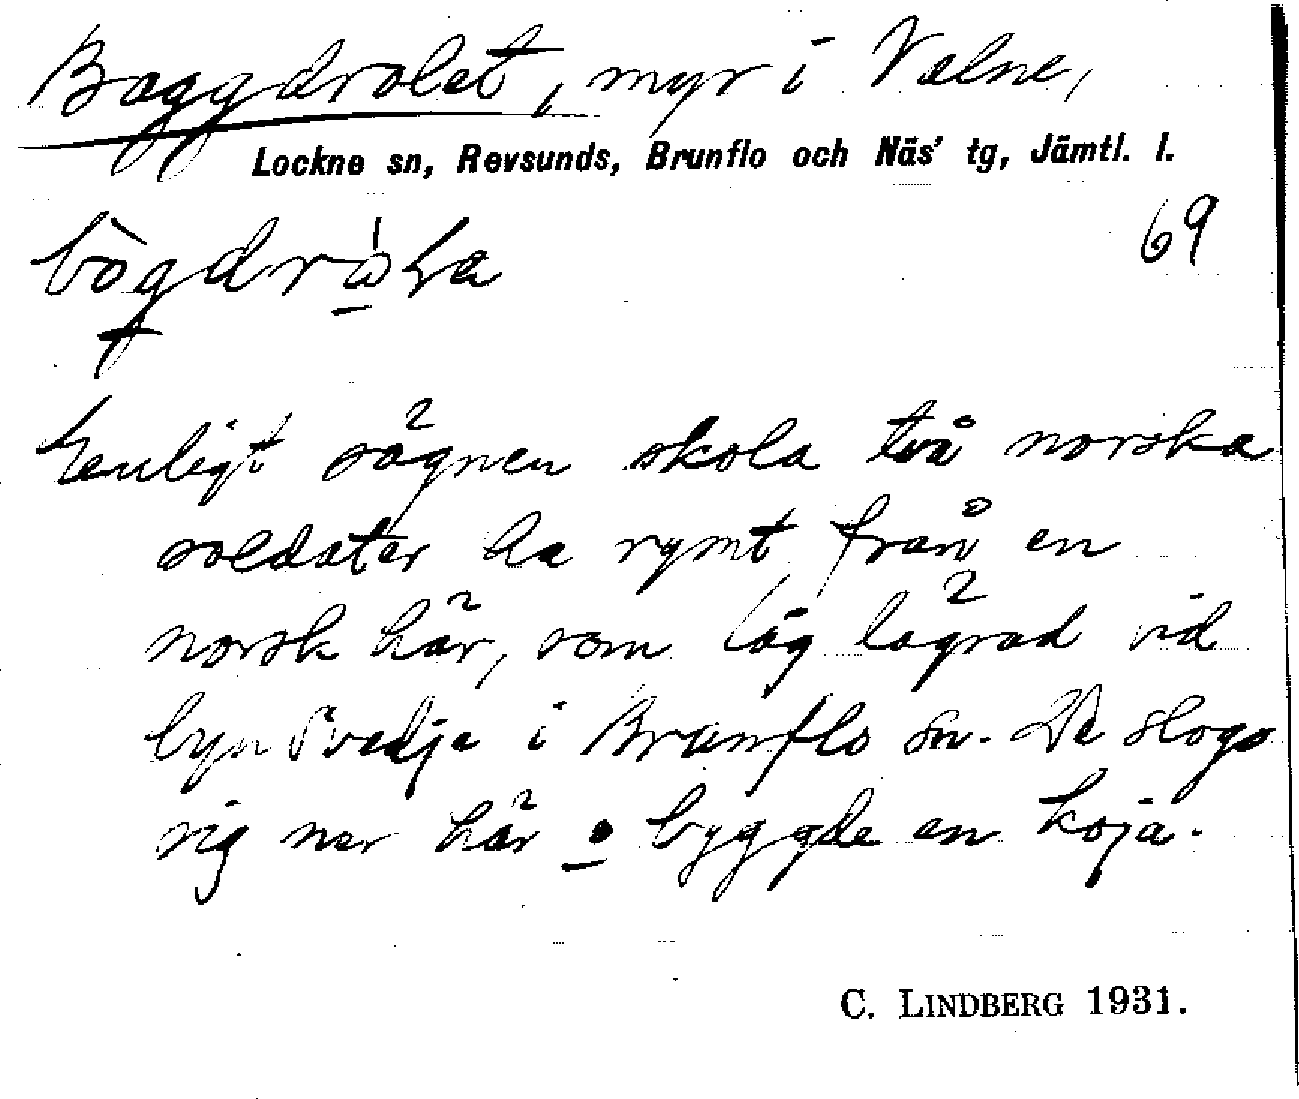 Baggdrolet, myr i Valne,
Lockne sn, Revsunds, Brunflo och Näs' tg, Jämtl. l.
69
Enligt sägnen skola två norska
soldater ha rymt från en
norsk här, som låg lägrad vid
byn Svedje i Brunflo sn. De slogo
sig ner här o byggde en koja.
C. LINDBERG 1931.